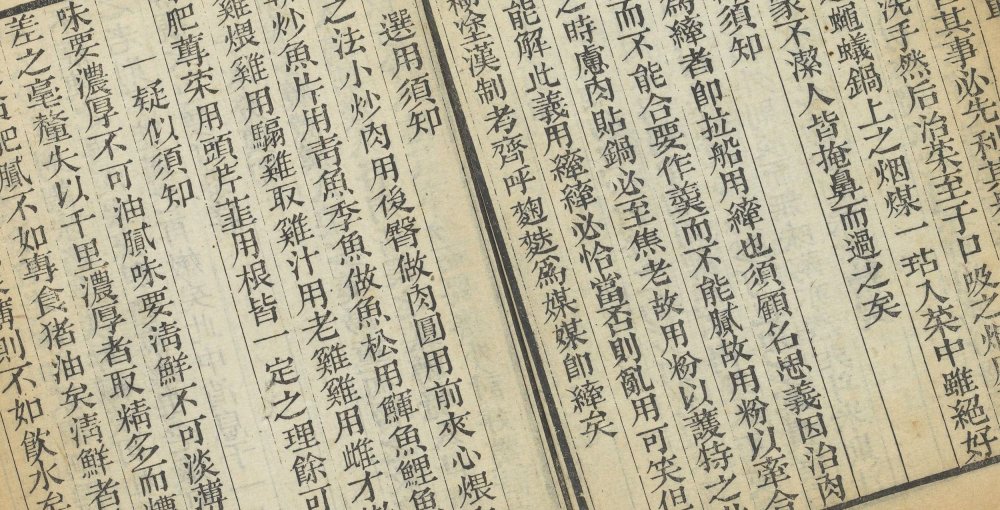 其事必先利其
洗手然后治菜至于口吸之烟
蠅蟻鍋上之烟煤一玷入菜中雖絕好
不潔人皆掩鼻而過之矣
須知
為縴者即拉船用縴也須顧名思義因治肉
而不能合要作羹而不能膩故用粉以牽合
之時慮肉貼鍋必至焦老故用粉以護持之
能解此義用縴縴必恰當否則亂用可笑但
糊塗漢制考齊呼麴麩爲媒媒即縴矣
選用須知
之法小炒肉用後臀做肉圓用前夾心煨
炒魚片用靑魚季魚做魚松用鯶魚鯉魚
雞煨雞用騸雞取雞汁用老雞雞用雌才
肥蓴菜用頭芹韭用根皆一定之理餘可
一疑似須知
味要濃厚不可油膩味要淸鮮不可淡薄
差之毫釐失以千里濃厚者取精多而糟
肥膩不如專食猪油矣淸鮮者
薄則不如飲水矣